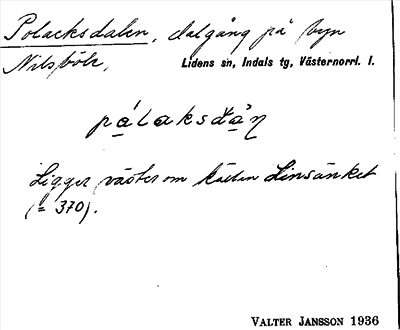 Polacksdalen, dalgång på byn
Nilsböle,
Lidens sn, Indals tg, Västernorrl. l.
pálaksda̱ʼn̥
Ligger väster om källen Linsänket
(= 370).
VALTER JANSSON 1936